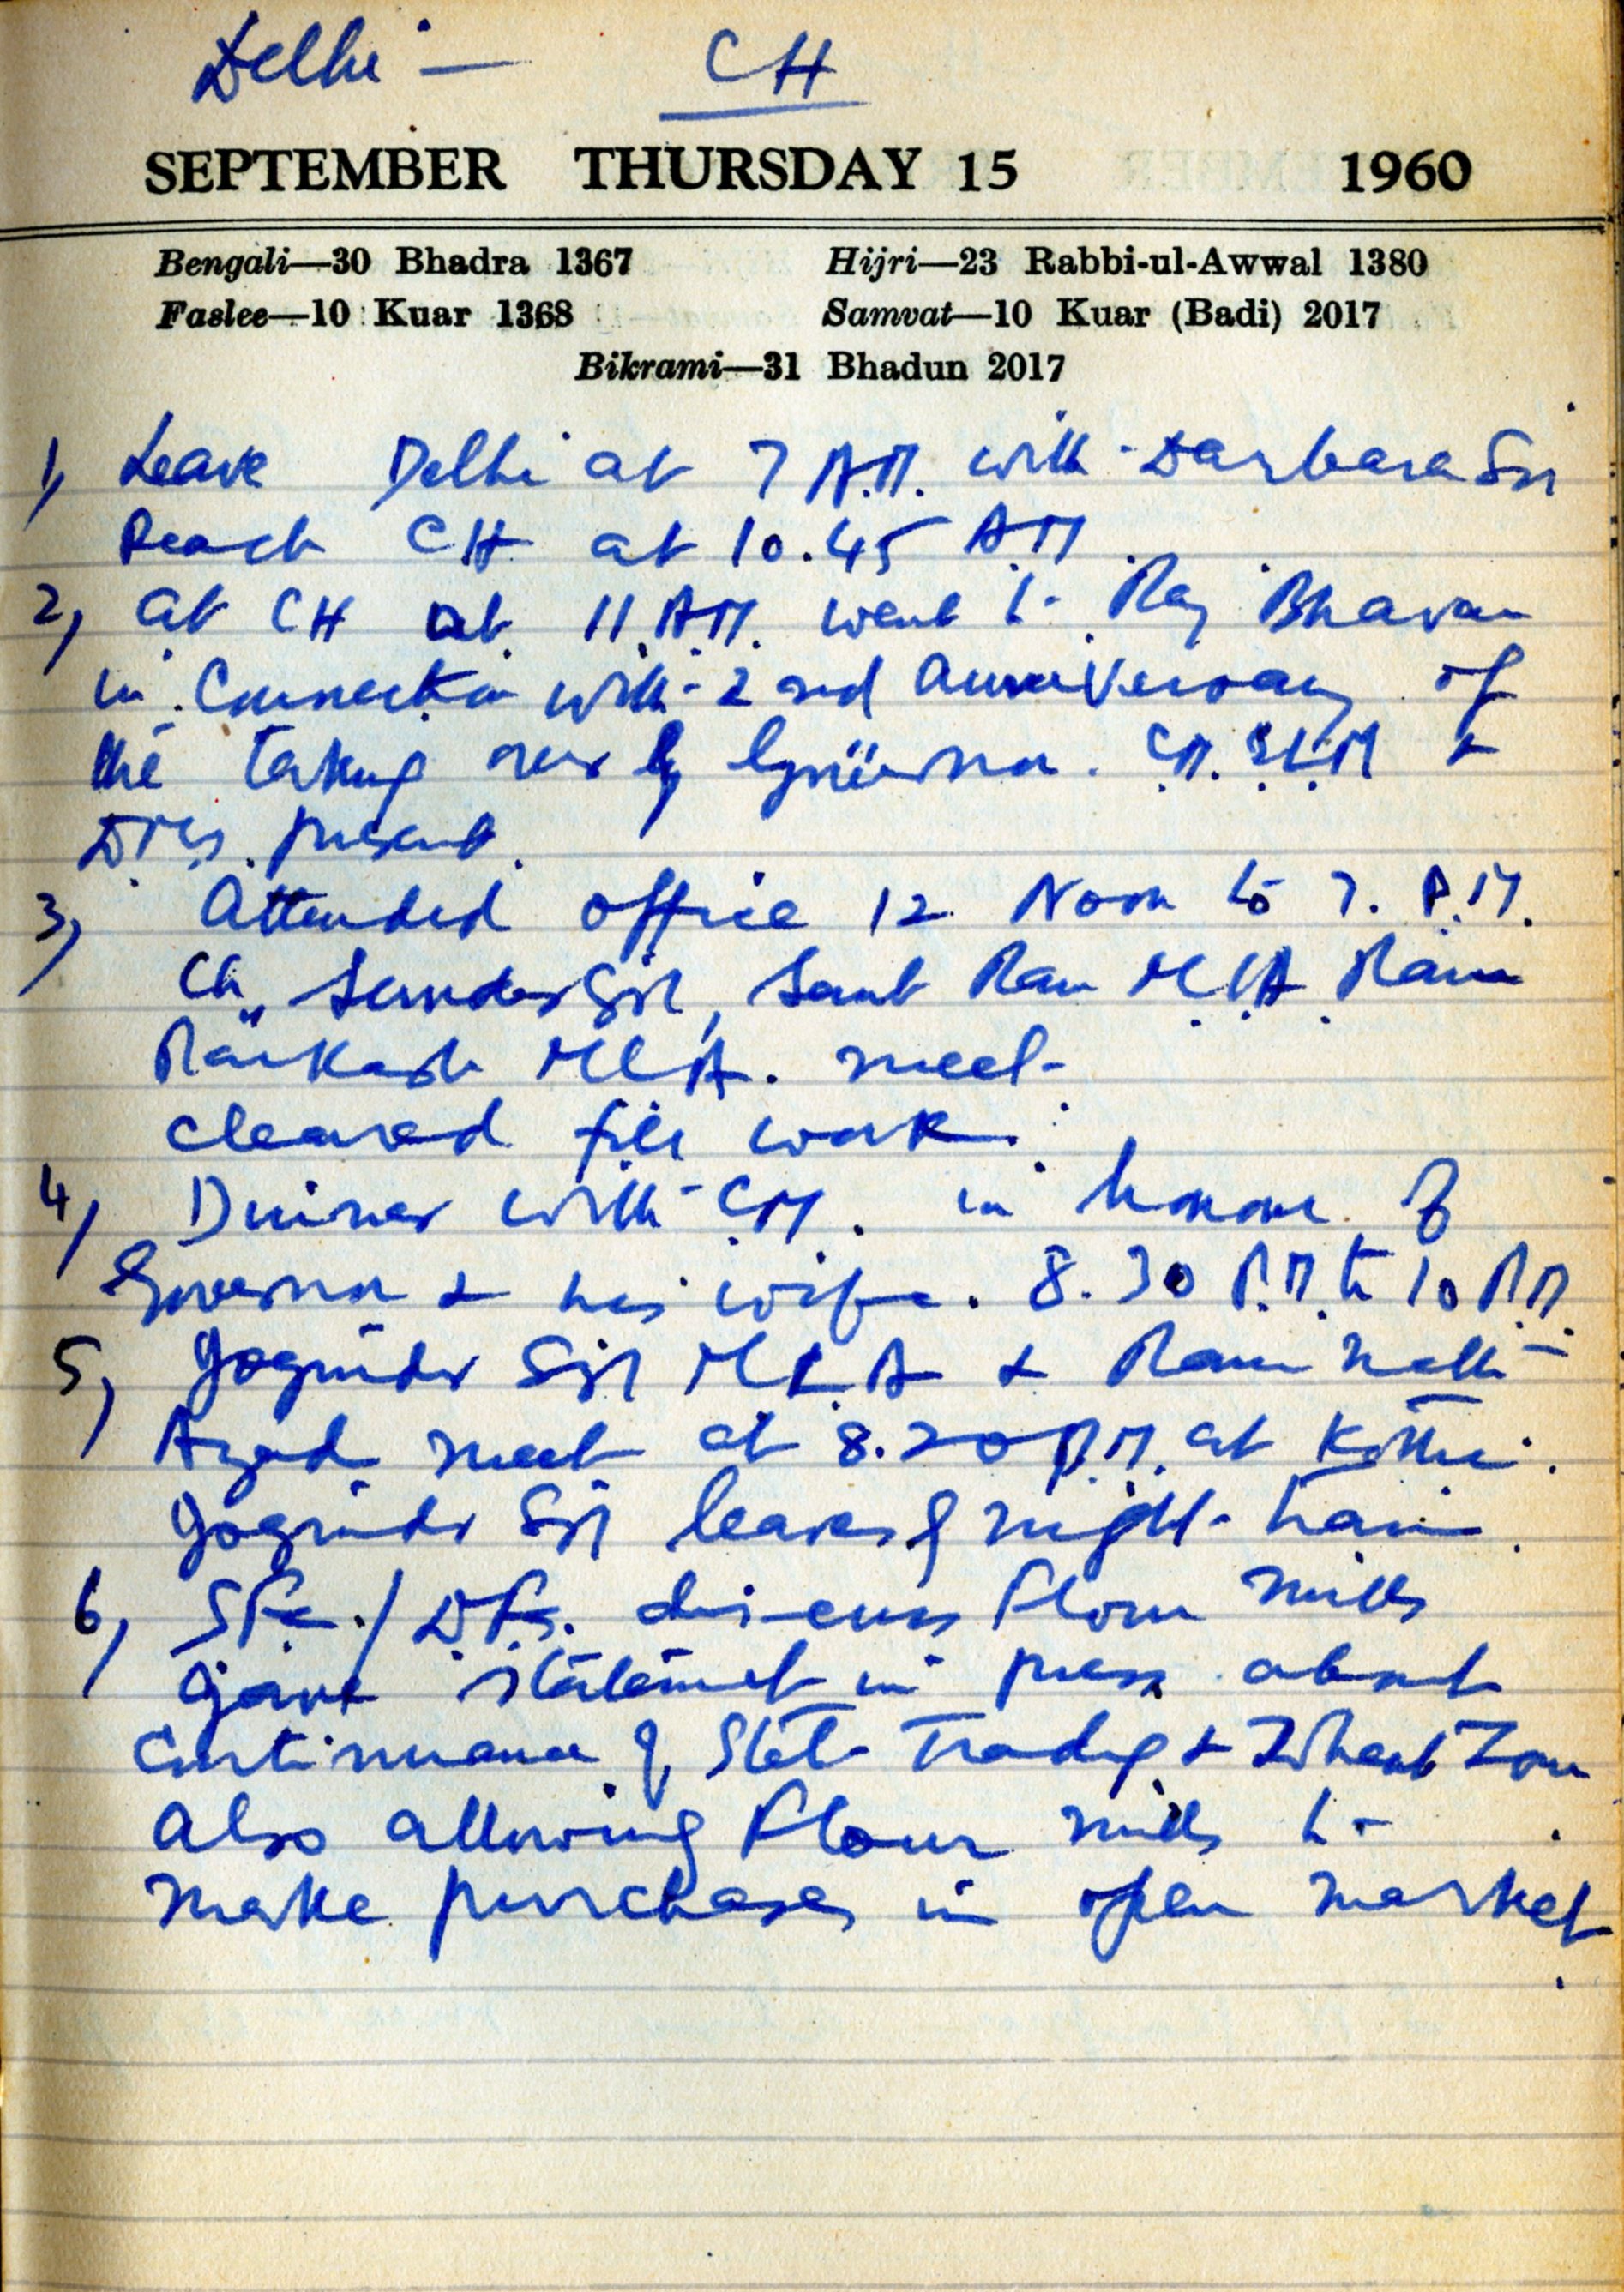 Delhi — CH
SEPTEMBER THURSDAY 15 1960
Bengali—30 Bhadra 1367 Hijri—23 Rabbi-ul-Awwal 1380
Faslee—10 Kuar 1368 Samvat—10 Kuar (Badi) 2017
Bikrami—31 Bhadun 2017
1, Leave Delhi at 7 A.M. with Darbara
Reach CH at 10.45 A.M.
2, at CH at 11 A.M. went to Raj Bhavan
in connection with 2nd anniversary of
the taking over by Governor. C.M. &
D.Ms. present.
3, Attended office 12 Noon to 7. P.M.
Ch. Sunder , Sant Ram M.L.A Ram
Parkash MLA. meet
cleared file work.
4, Dinner with C.M. in honour of
Governor & his wife. 8.30 P.M. to 10 P.M.
5, Joginder MLA & Ram Nath
Azad meet at 8.20 P.M. at Kothi.
Joginder leaves by night train.
6, discuss Flour Mills
gave statement in press about
continuance of State Trading & Wheat Zone
also allowing Flour mills to
make purchases in open market.